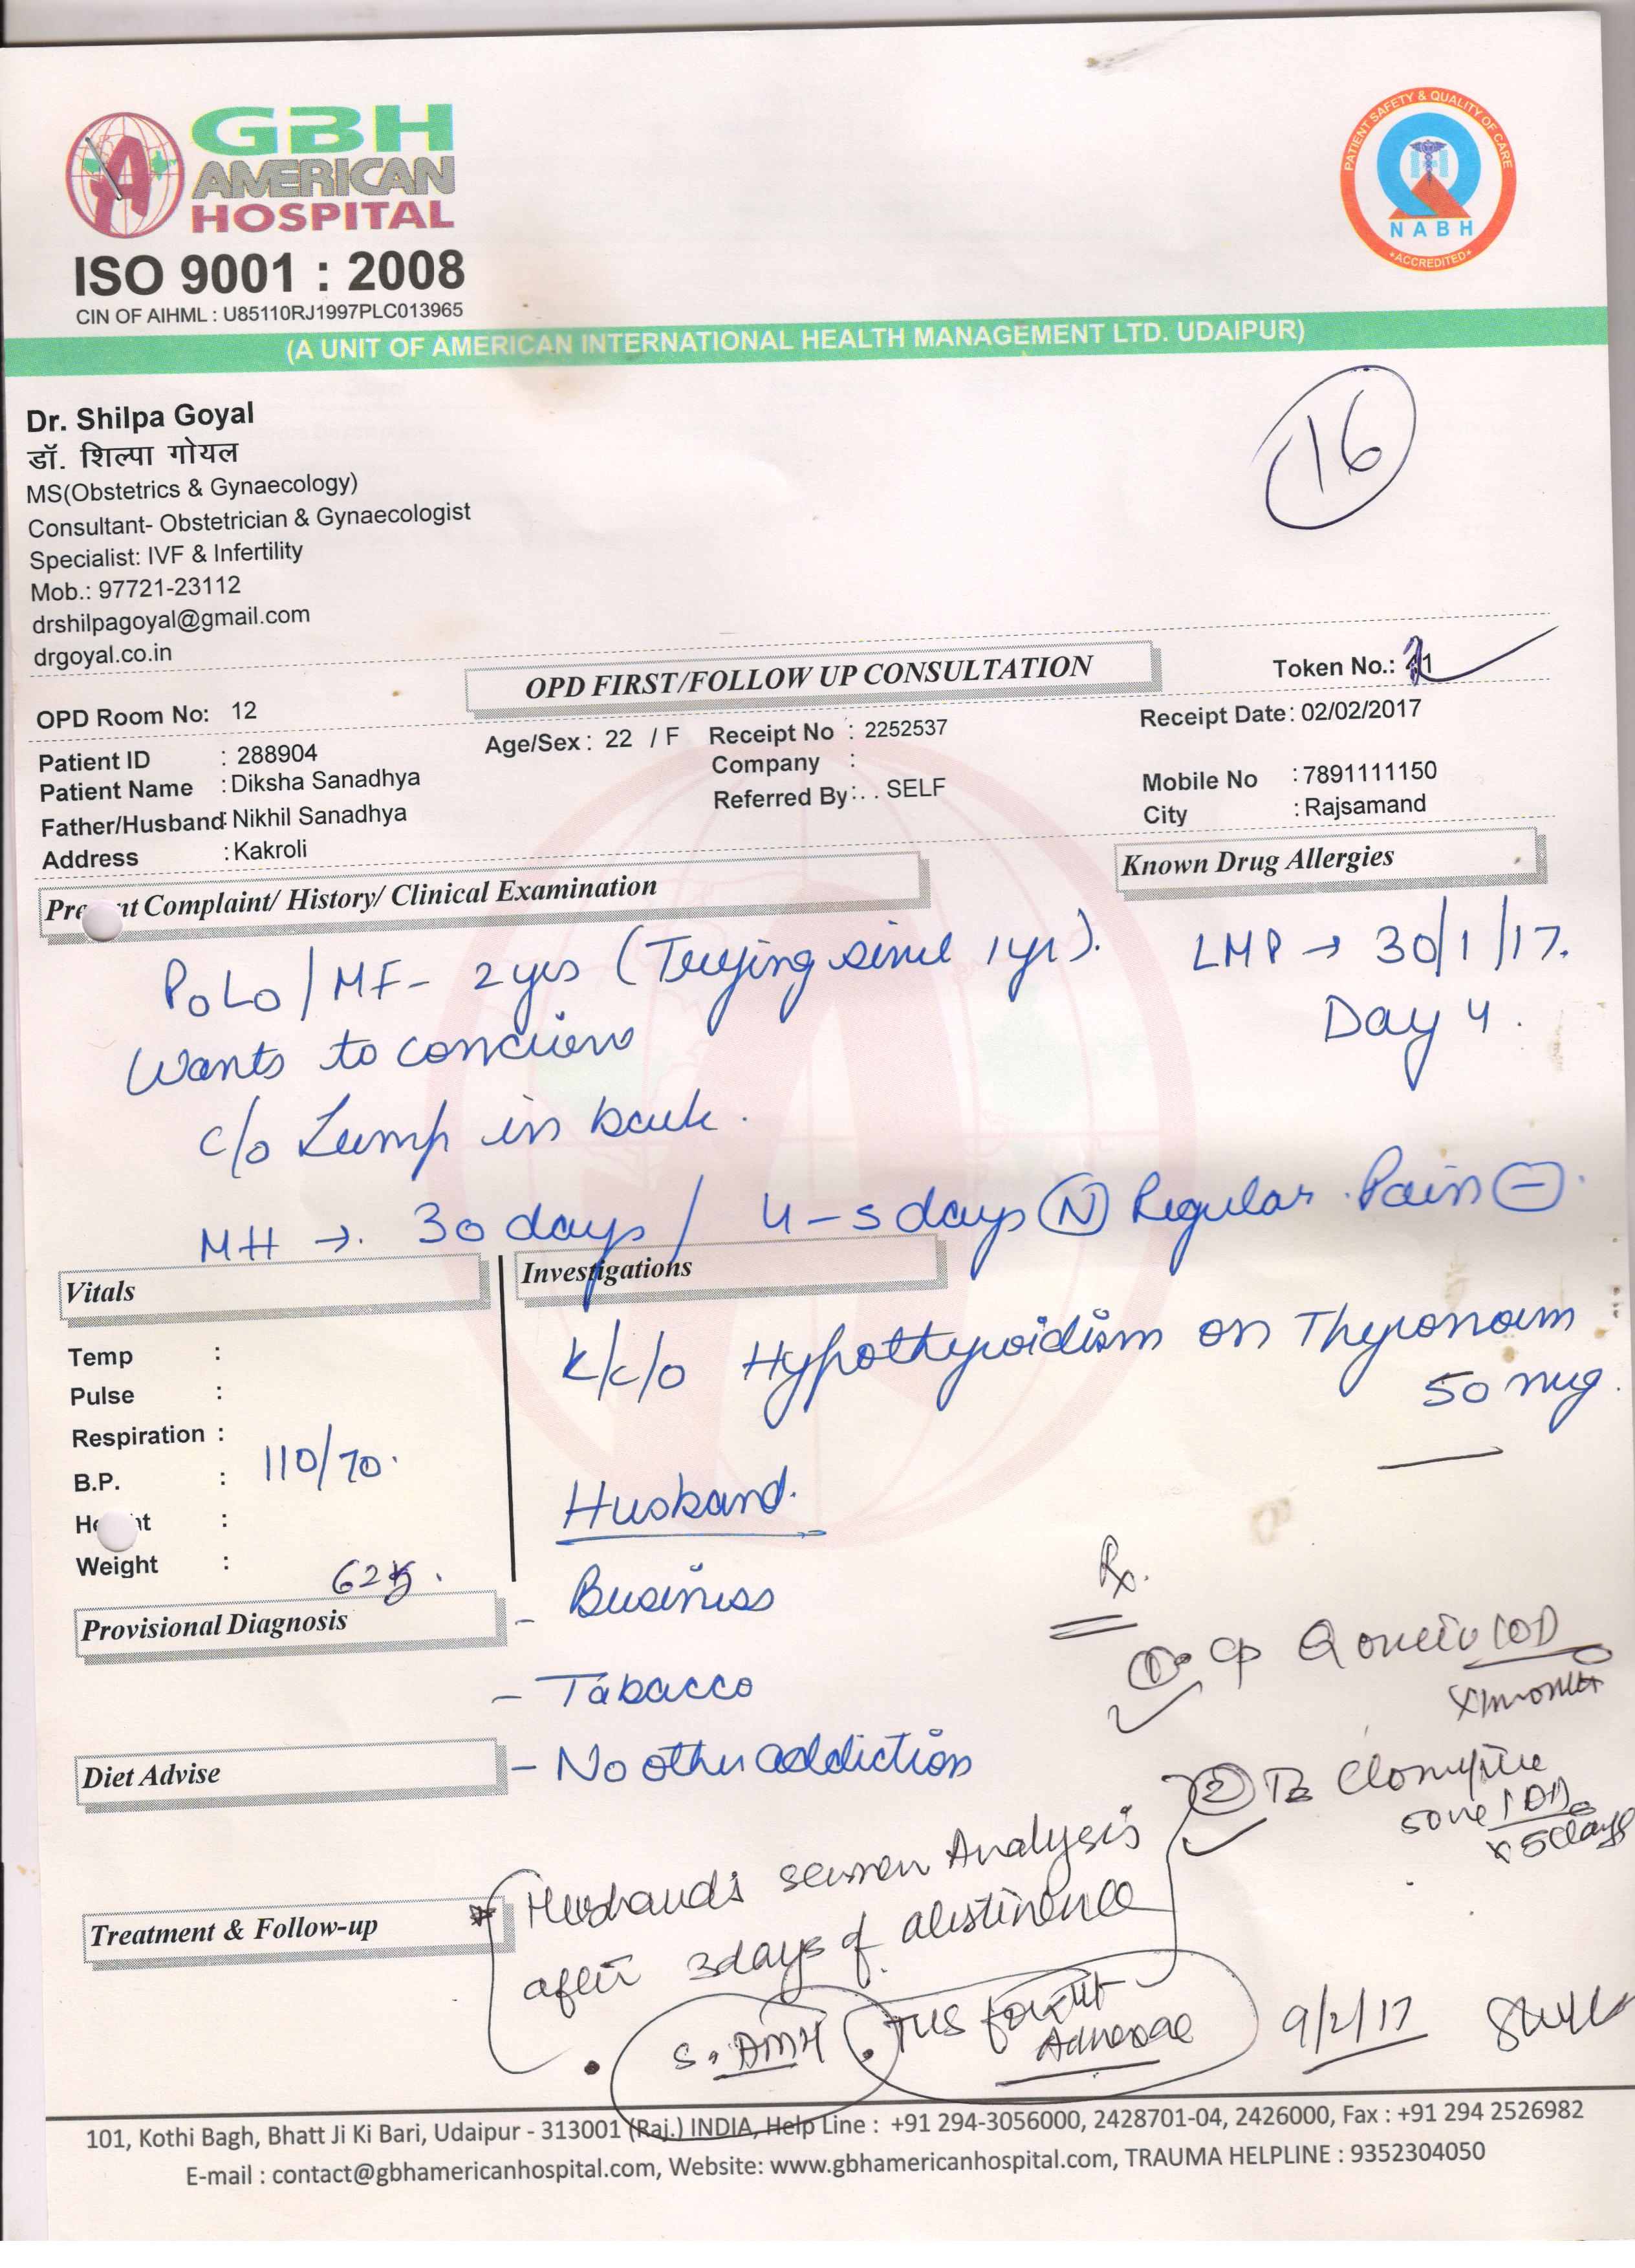 GBH
AMERICAN
HOSPITAL
ISO 9001 : 2008
CIN OF AIHML : U85110RJ1997PLC013965
PATIENT SAFETY & QUALITY OF CARE
NABH
*ACCREDITED*
(A UNIT OF AMERICAN INTERNATIONAL HEALTH MANAGEMENT LTD. UDAIPUR)
16
Dr. Shilpa Goyal
डॉ. शिल्पा गोयल
MS(Obstetrics & Gynaecology)
Consultant- Obstetrician & Gynaecologist
Specialist: IVF & Infertility
Mob.: 97721-23112
drshilpagoyal@gmail.com
drgoyal.co.in
OPD FIRST/FOLLOW UP CONSULTATION
Token No.:
OPD Room No: 12
Receipt Date: 02/02/2017
Patient ID : 288904 Age/Sex : 22 / F Receipt No : 2252537
Patient Name : Diksha Sanadhya Company : Mobile No : 7891111150
Father/Husband: Nikhil Sanadhya Referred By: . . SELF City : Rajsamand
Address : Kakroli
Complaint/ History/ Clinical Examination Known Drug Allergies
P0L0 / MF- 2 yrs (Trying since 1 yr). LMP → 30/1/17.
Wants to Day 4.
c/o Lump in back.
MH →. 30 days / 4-5 days (N) Regular. Pain (-).
Vitals Investigations
Temp :
Pulse :
Respiration :
B.P. : 110/70.
:
Weight : 62kg.
k/c/o Hypothyroidism on Thyronorm
50 mcg.
Husband.
- Business
- Tabacco
- No other addiction
Provisional Diagnosis
Diet Advise
Treatment & Follow-up
Rx.
① cp 1OD
x 1 month
② Tb
50 1OD
x 5days
* Husband's semen Analysis
after 3days of abstinence
S. AMH . TVS for
9/2/17
101, Kothi Bagh, Bhatt Ji Ki Bari, Udaipur - 313001 (Raj.) INDIA, Help Line : +91 294-3056000, 2428701-04, 2426000, Fax : +91 294 2526982
E-mail : contact@gbhamericanhospital.com, Website: www.gbhamericanhospital.com, TRAUMA HELPLINE : 9352304050